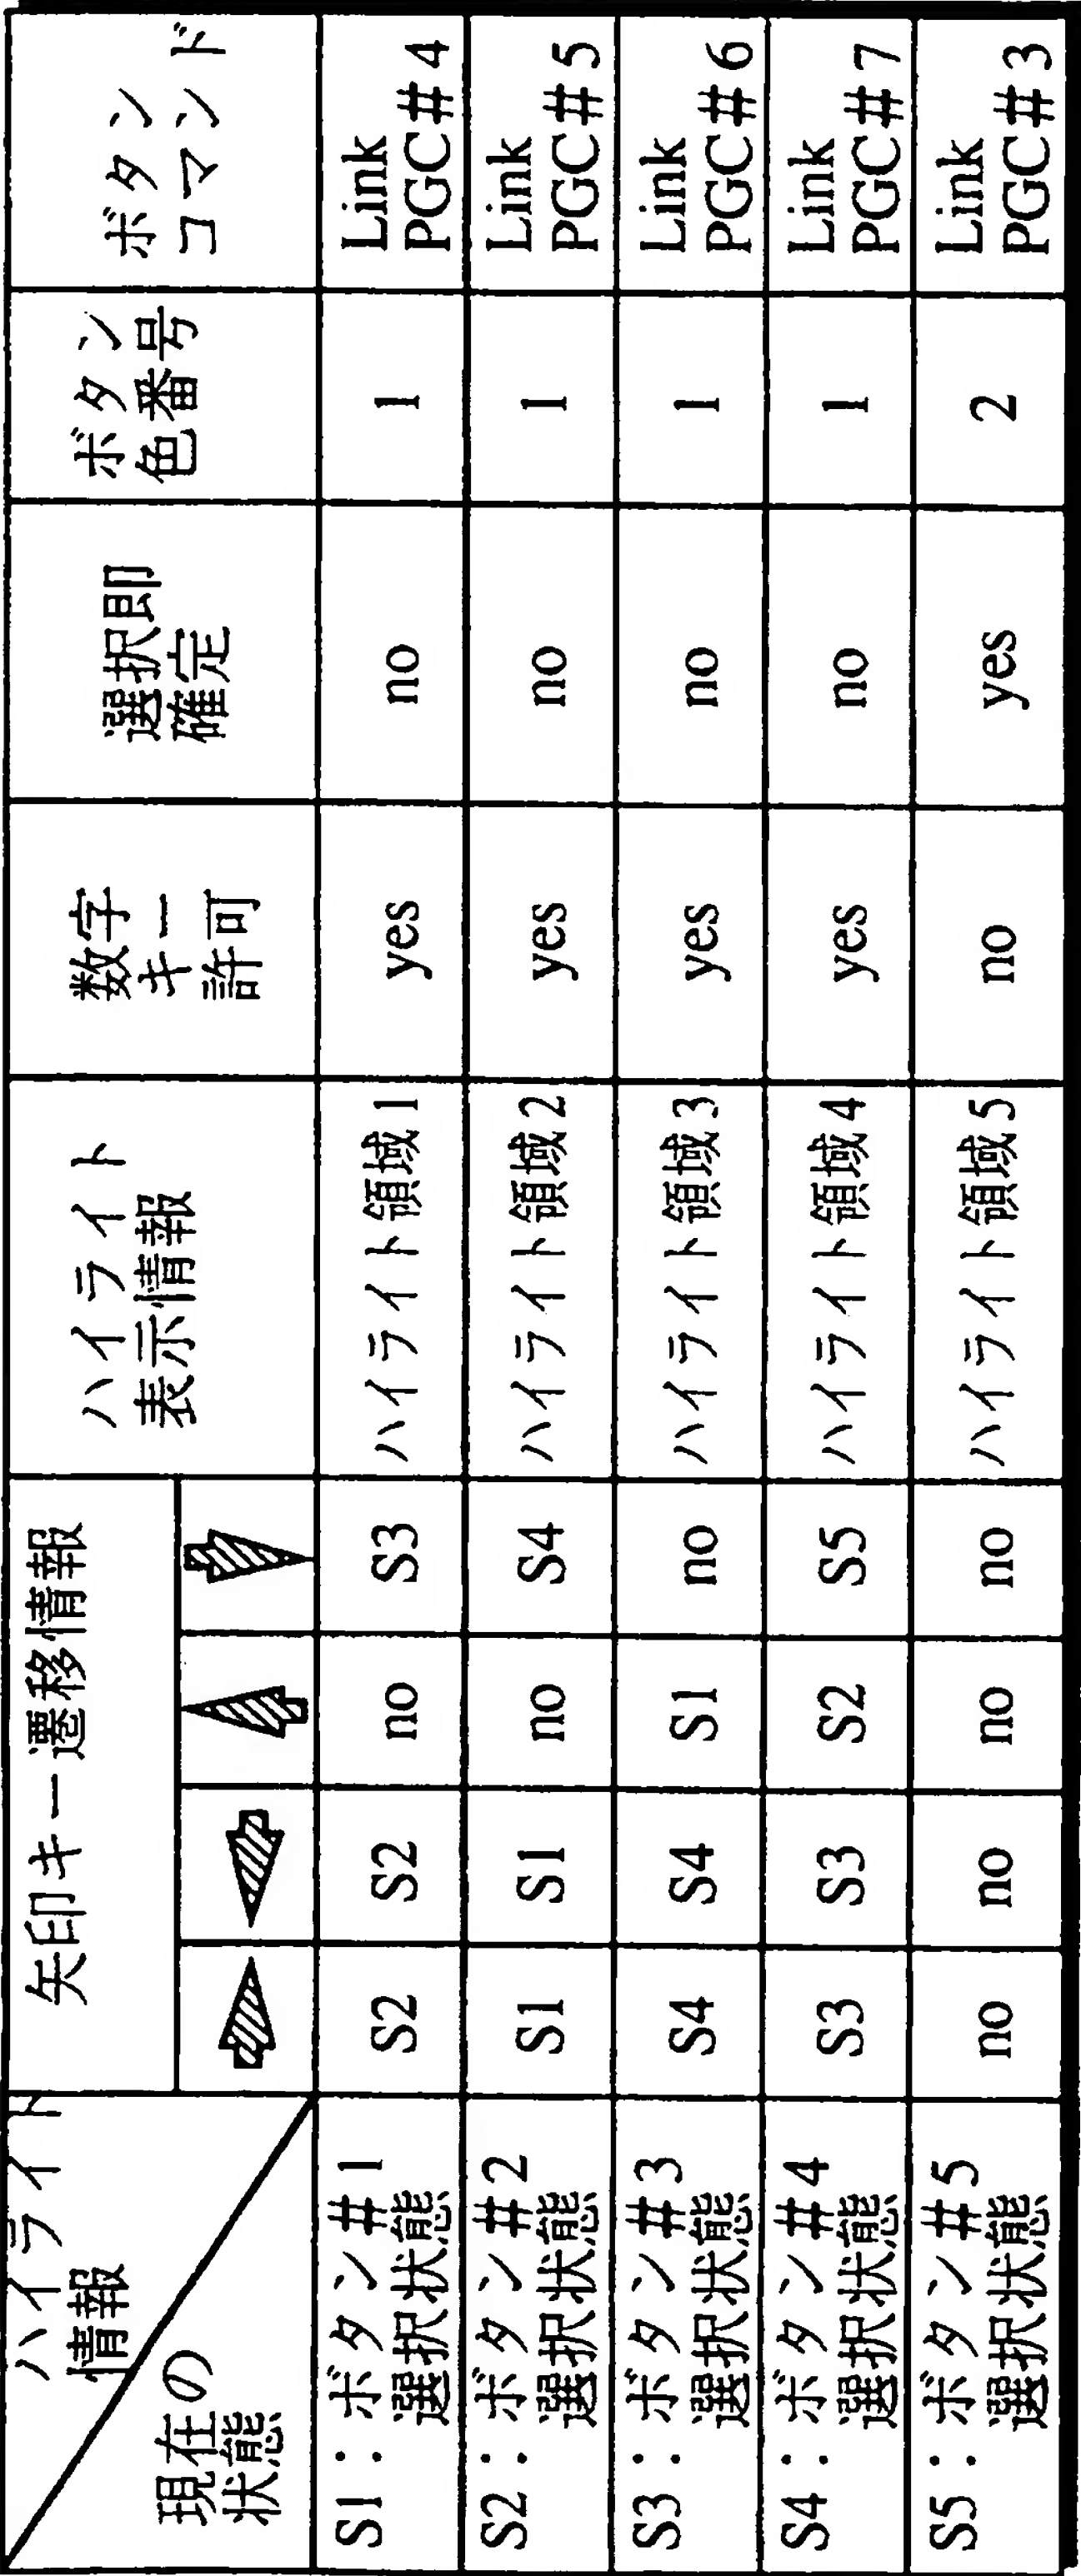 ハイライト
情報
現在の
状態
矢印キー遷移情報
ハイライト
表示情報
数字
キー
許可
選択即
確定
ボタン
色番号
ボタン
コマンド
S1：ボタン#1
選択状態
S2 S2 no S3 ハイライト領域1 yes no 1
Link
PGC#4
S2：ボタン#2
選択状態
S1 S1 no S4 ハイライト領域2 yes no 1
Link
PGC#5
S3：ボタン#3
選択状態
S4 S4 S1 no ハイライト領域3 yes no 1
Link
PGC#6
S4：ボタン#4
選択状態
S3 S3 S2 S5 ハイライト領域4 yes no 1
Link
PGC#7
S5：ボタン#5
選択状態
no no no no ハイライト領域5 no yes 2
Link
PGC#3